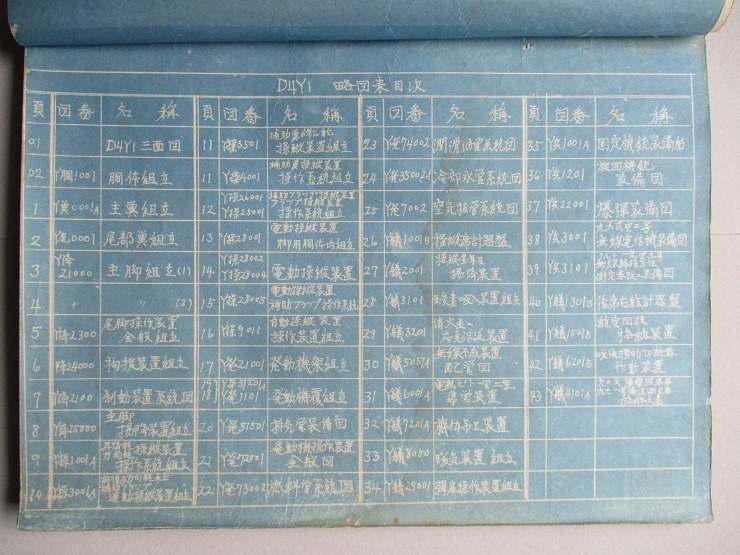 D4Y1 略図表目次
頁 図番 名称 頁 図番 名称 頁 図番 名称 頁 図番 名称
01 D4Y1 三面図
02 Y胴1001 胴体組立
1 Y翼0001A 主翼組立
2 Y尾0001 尾部翼組立
3 Y降21000 主脚組立(1)
4 〃 〃 (2)
5 Y降2300 尾脚操作装置全般組立
6 降24000 拘捉装置組立
7 Y降2100 制動装置系統図
8 Y降25000 主脚揚降装置組立
9 Y操1001A 操縦装置操作系統組立
10 Y操3001A 電動操縦装置組立
11 Y操3501 操縦装置組立
11 Y操4001 補助翼操縦装置操作系統組立
12 Y操26001 Y操25001 操作系統組立
13 Y操28001 電動操縦装置脚用胴体内組立
14 Y操28002 Y操28004 電動操縦装置
15 Y操28005 電動操縦装置補助フラップ操作系統
16 Y操9011 自動操縦装置操作装置組立
17 Y発21001 発動機架組立
18 Y発3101 発動機覆組立
20 Y発57501 排気管装備図
21 Y発72001 発動機操作装置全般図
22 Y発73002 燃料管系統図
23 Y発74002 潤滑油管系統図
24 Y発35002A 冷却水管系統図
25 Y発7002 空気抜管系統図
26 Y儀1001B 操縦席計器盤
27 Y儀2001 揚降装置
28 Y儀3101 酸素吸入装置組立
29 Y儀3201 装置
30 Y儀5057A 配管図
31 Y儀6001A 導管装置
32 Y儀7201A 機体吊上装置
33 Y儀8050 暖気装置組立
34 Y儀29001 弾扉操作装置組立
35 Y兵1001A 固定機銃装備図
36 Y兵1201 旋回機銃装備図
37 Y兵22001 爆弾装備図
38 Y兵3001 無線電信機装備図
39 Y兵3101 装備図
40 Y儀1301B 後席右舷計器盤
41 Y儀1501B 格納装置
42 Y儀6201B 作動装置
43 Y儀4101A